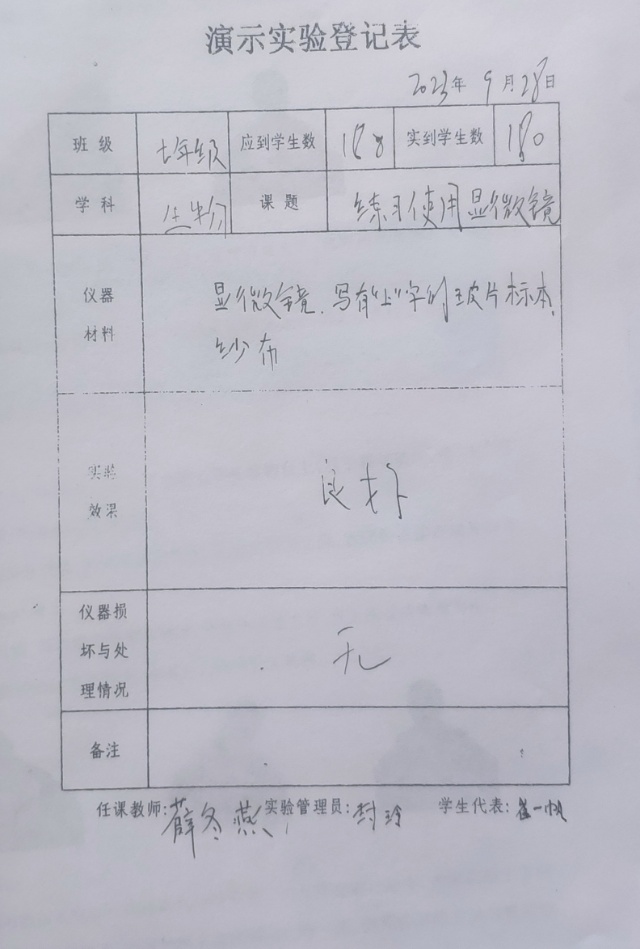 演示实验登记表
2023年 9月28日
班 级 七年级 应到学生数 180 实到学生数 180
学 科 生物 课 题 练习使用显微镜
仪器
材料
显微镜、写有“上”字的玻片标本、
纱布
实验
效果
良好
仪器损
坏与处
理情况
无
备注
任课教师:薛冬燕 实验管理员:封玲 学生代表:崔一帆